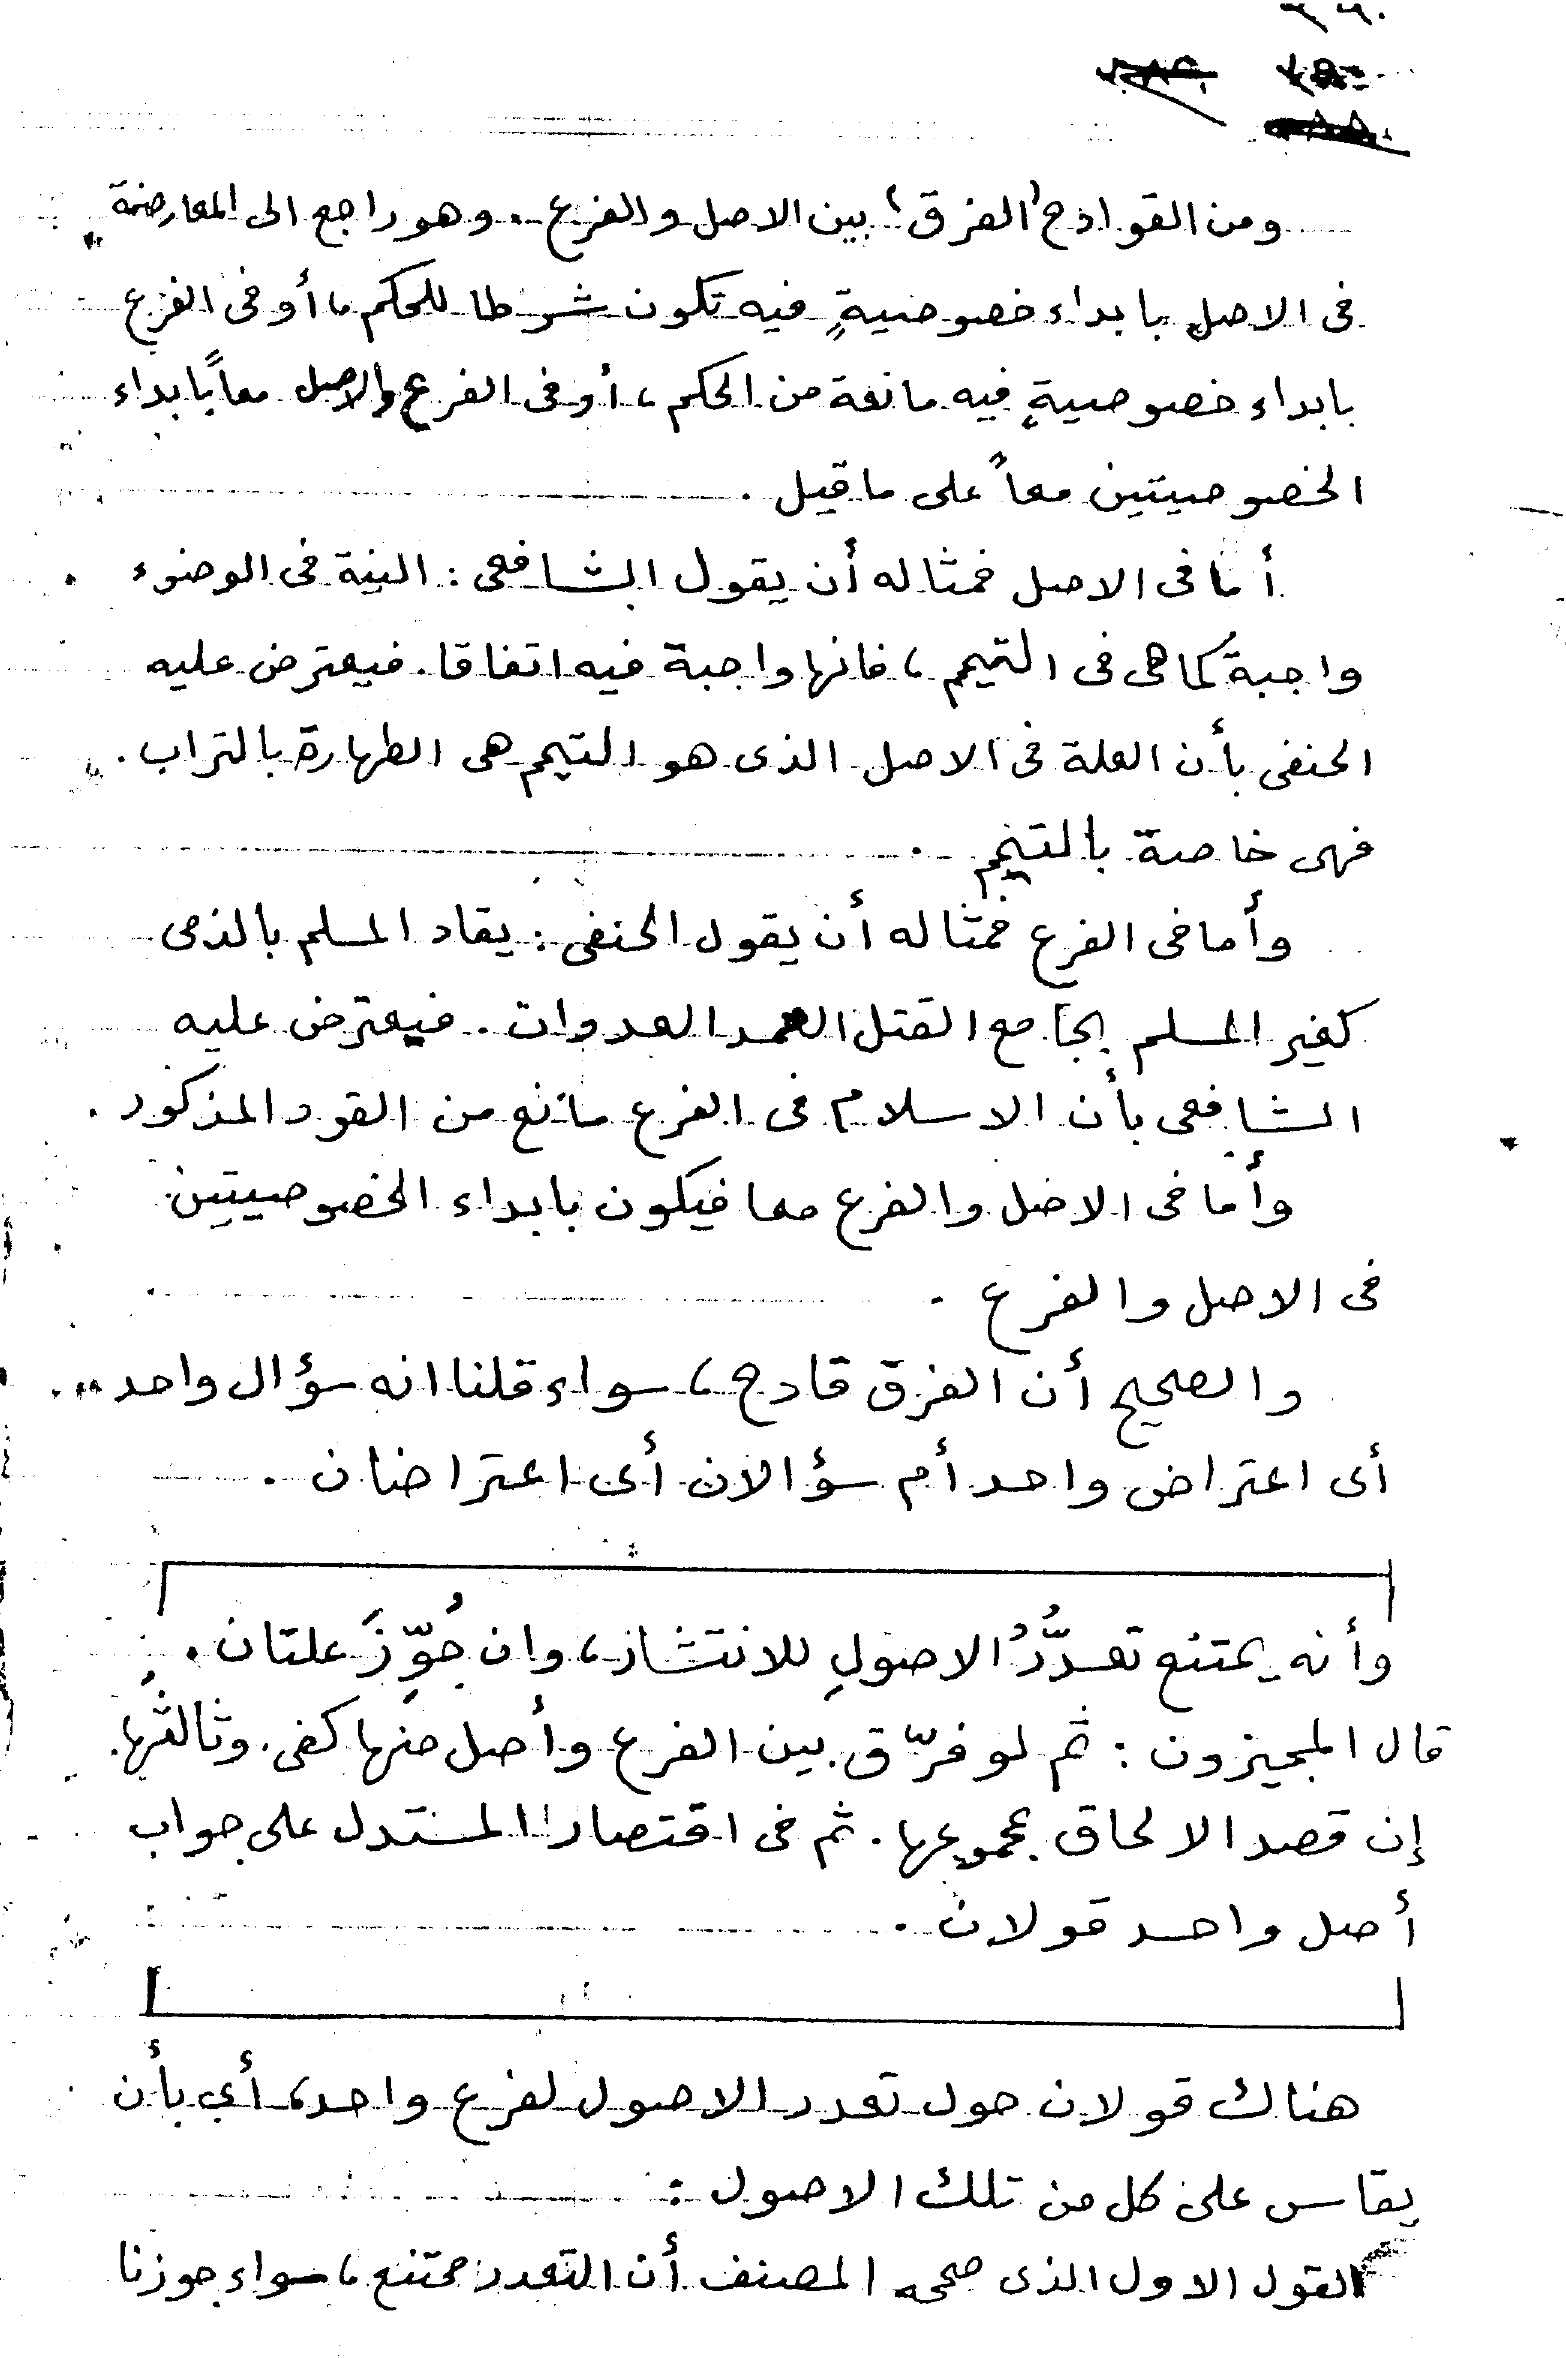 ومن القوادح (الفرق) بين الاصل والفرع. وهو راجع الى المعارضة
فى الاصل بابداء خصوصيةٍ فيه تكون شرطا للحكم، أو فى الفرع
بابداء خصوصيةٍ فيه مانعة من الحكم، أو فى الفرع والاصل معاً بابداء
الخصوصيتين معاً على ما قيل.
أما فى الاصل فمثاله أن يقول الشافعى: النية فى الوضوء
واجبة كما هى فى التيمم، فانها واجبة فيه اتفاقا. فيعترض عليه
الحنفى بأن العلة فى الاصل الذى هو التيمم هى الطهارة بالتراب.
فهى خاصة بالتيمم.
وأما فى الفرع فمثاله أن يقول الحنفى: يقاد المسلم بالذمى
كغير المسلم بجامع القتل العمد العدوان. فيعترض عليه
الشافعى بأن الاسلام فى الفرع مانع من القود المذكور.
وأما فى الاصل والفرع معا فيكون بابداء الخصوصيتين
فى الاصل والفرع.
والصحيح أن الفرق قادح، سواء قلنا انه سؤال واحد
أى اعتراض واحد أم سؤالان أى اعتراضان.
وأنه يمتنع تعدُّدُ الاصولِ للانتشار، وان جُوِّزَ علتان.
قال المجيزون: ثم لو فرّق بين الفرع وأصل منها كفى. وثالثُها
إن قصد الالحاق بمجموعها. ثم فى اقتصار المستدل على جواب
أصل واحد قولان.
هناك قولان حول تعدد الاصول لفرع واحد، أي بأن
يقاس على كل من تلك الاصول:
القول الاول الذى صححه المصنف أن التعدد ممتنع، سواء جوزنا